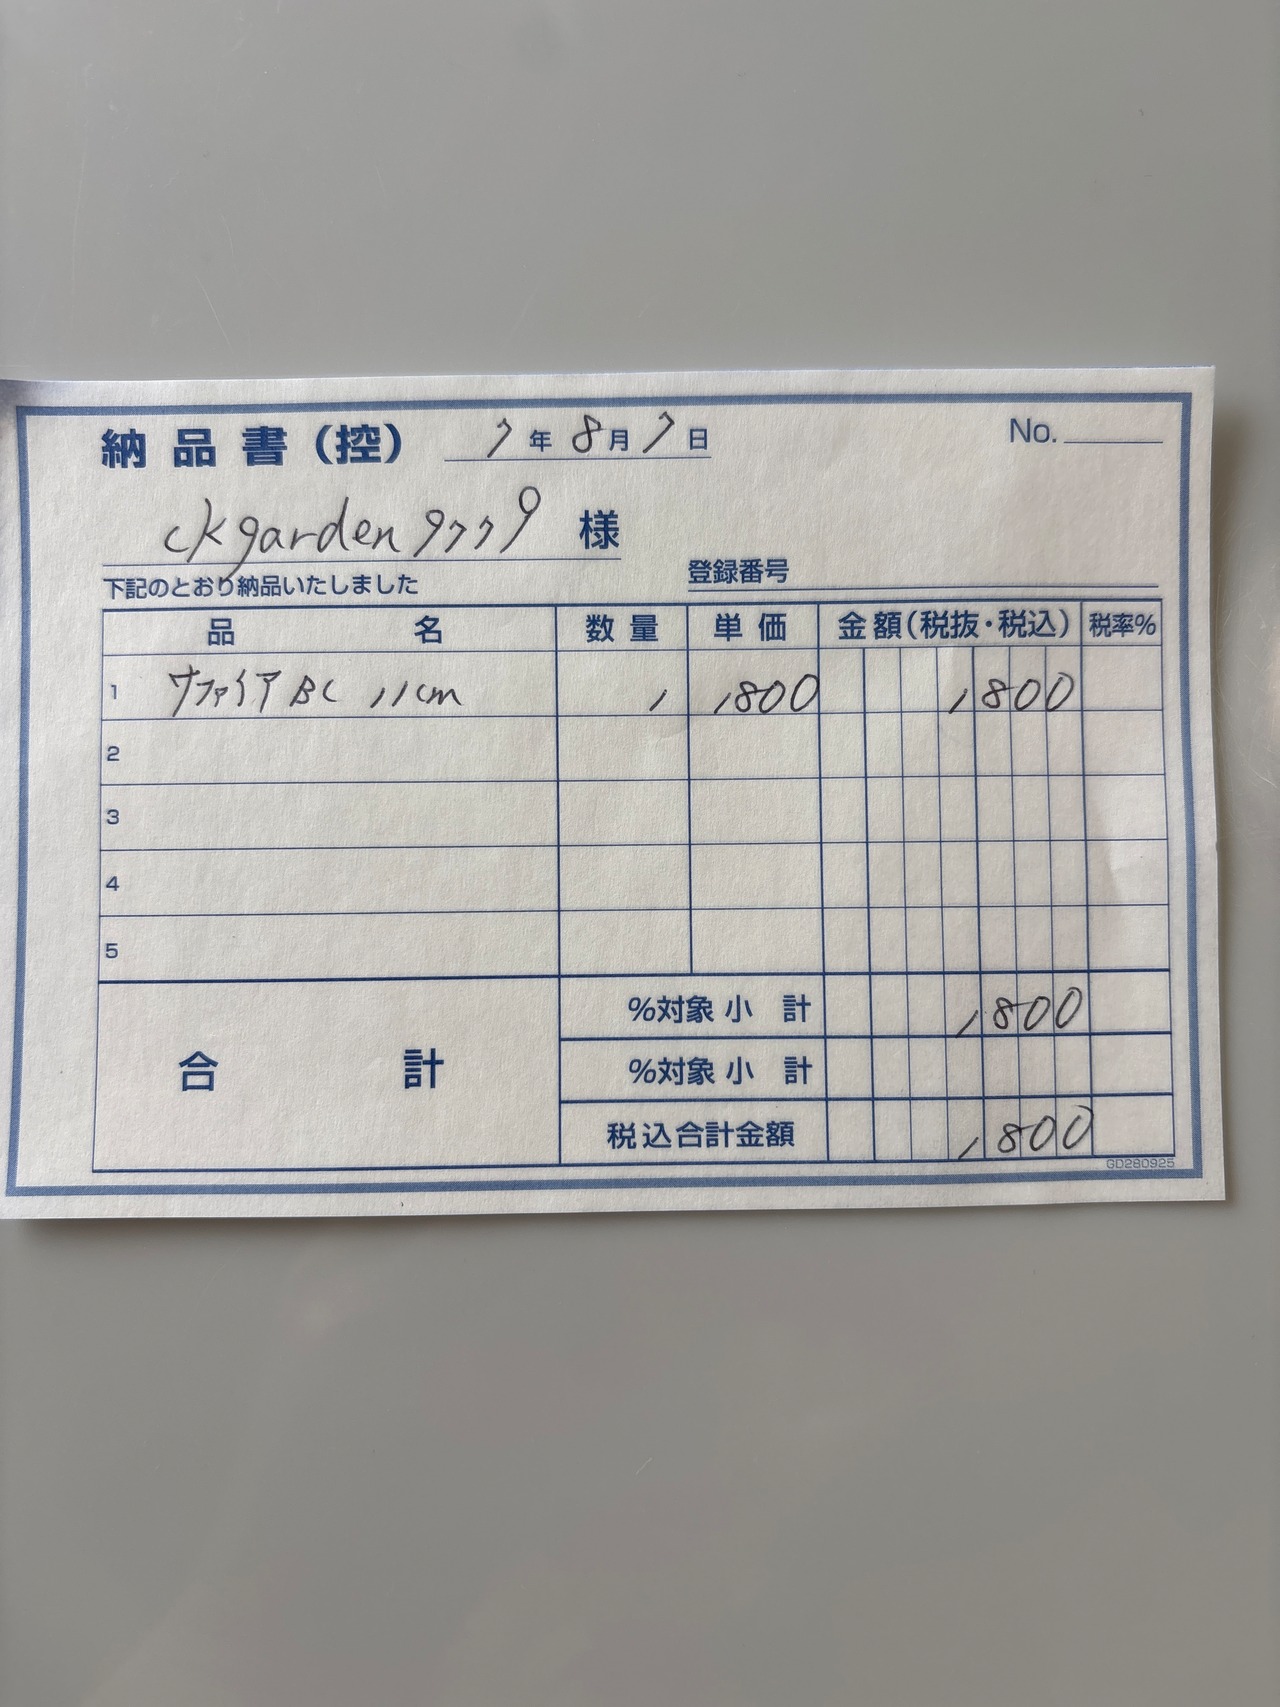 納品書(控) 7年8月7日 No.
ckgarden9779 様
下記のとおり納品いたしました 登録番号
品名 数量 単価 金額(税抜・税込) 税率%
1 サファイアBC 11cm 1 1800 1800
2
3
4
5
%対象小計 1800
合計 %対象小計
税込合計金額 1800
GD280925